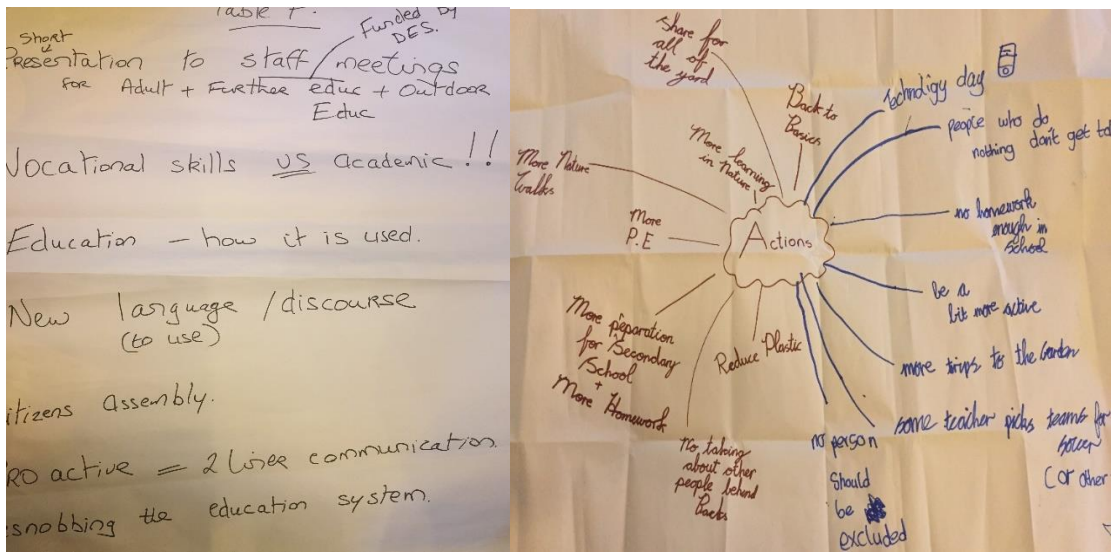 Table 7.
Funded by
DES.
Short
Presentation to staff meetings
for Adult + Further educ + Outdoor
Educ
Vocational skills vs academic!!
Education – how it is used.
New language / discourse
(to use)
itizens assembly.
ro active = 2 liner communication.
esnobbing the education system.
share for
all of
the yard
Back to
Basics
More learning
in nature
More Nature
Walks
More
P.E
Actions
More preparation
for Secondary
School
+
More Homework
Reduce Plastic
no taking
about other
people behind
Backs
Technoligy day
people who do
nothing don't get
no homework
enough in
school
be a
bit more active
more trips to the Garden
some teacher picks teams for
soccer
(or other
no person
should
be
excluded